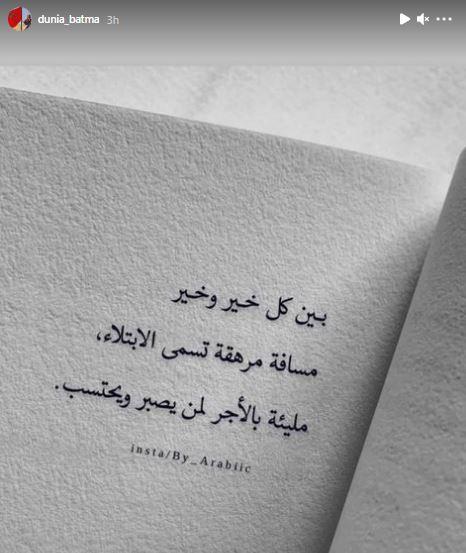 dunia_batma 3h
بين كل خير وخير
مسافة مرهقة تسمى الابتلاء،
مليئة بالأجر لمن يصبر ويحتسب.
insta/By_Arabiic